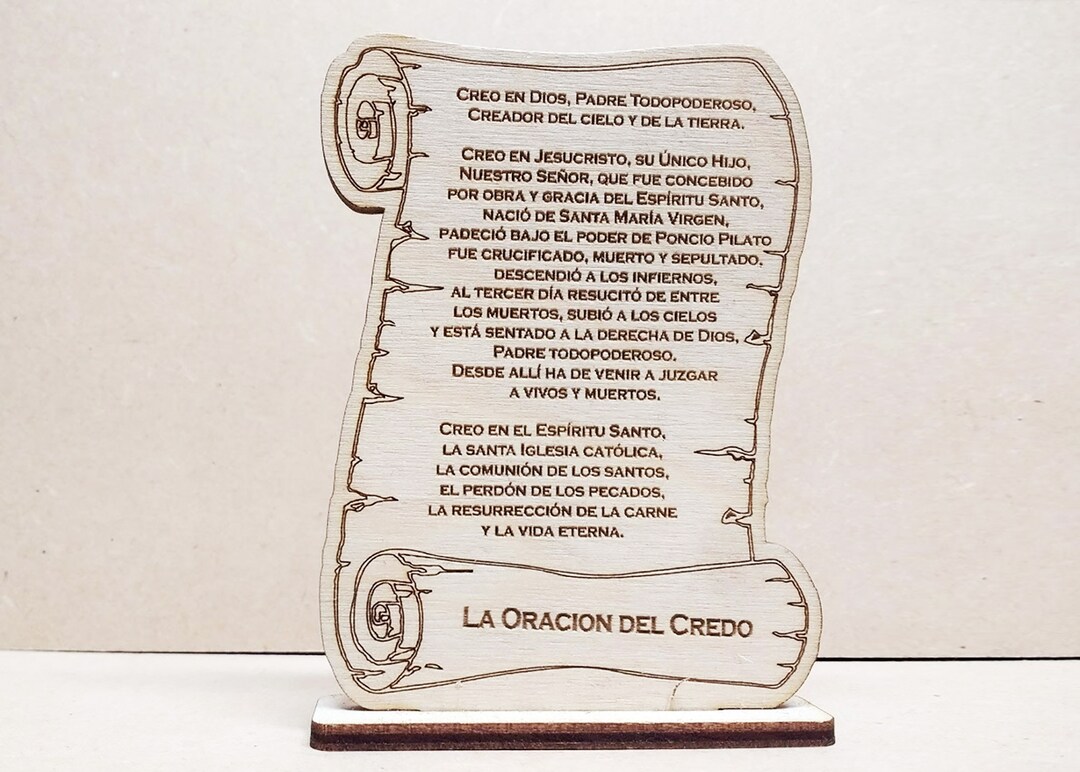 Creo en Dios, Padre Todopoderoso,
Creador del cielo y de la tierra.
Creo en Jesucristo, su Único Hijo,
Nuestro Señor, que fue concebido
por obra y gracia del Espíritu Santo,
nació de Santa María Virgen,
padeció bajo el poder de Poncio Pilato
fue crucificado, muerto y sepultado,
descendió a los infiernos,
al tercer día resucitó de entre
los muertos, subió a los cielos
y está sentado a la derecha de Dios,
Padre todopoderoso.
Desde allí ha de venir a juzgar
a vivos y muertos.
Creo en el Espíritu Santo,
la santa Iglesia católica,
la comunión de los santos,
el perdón de los pecados,
la resurrección de la carne
y la vida eterna.
La Oracion del Credo